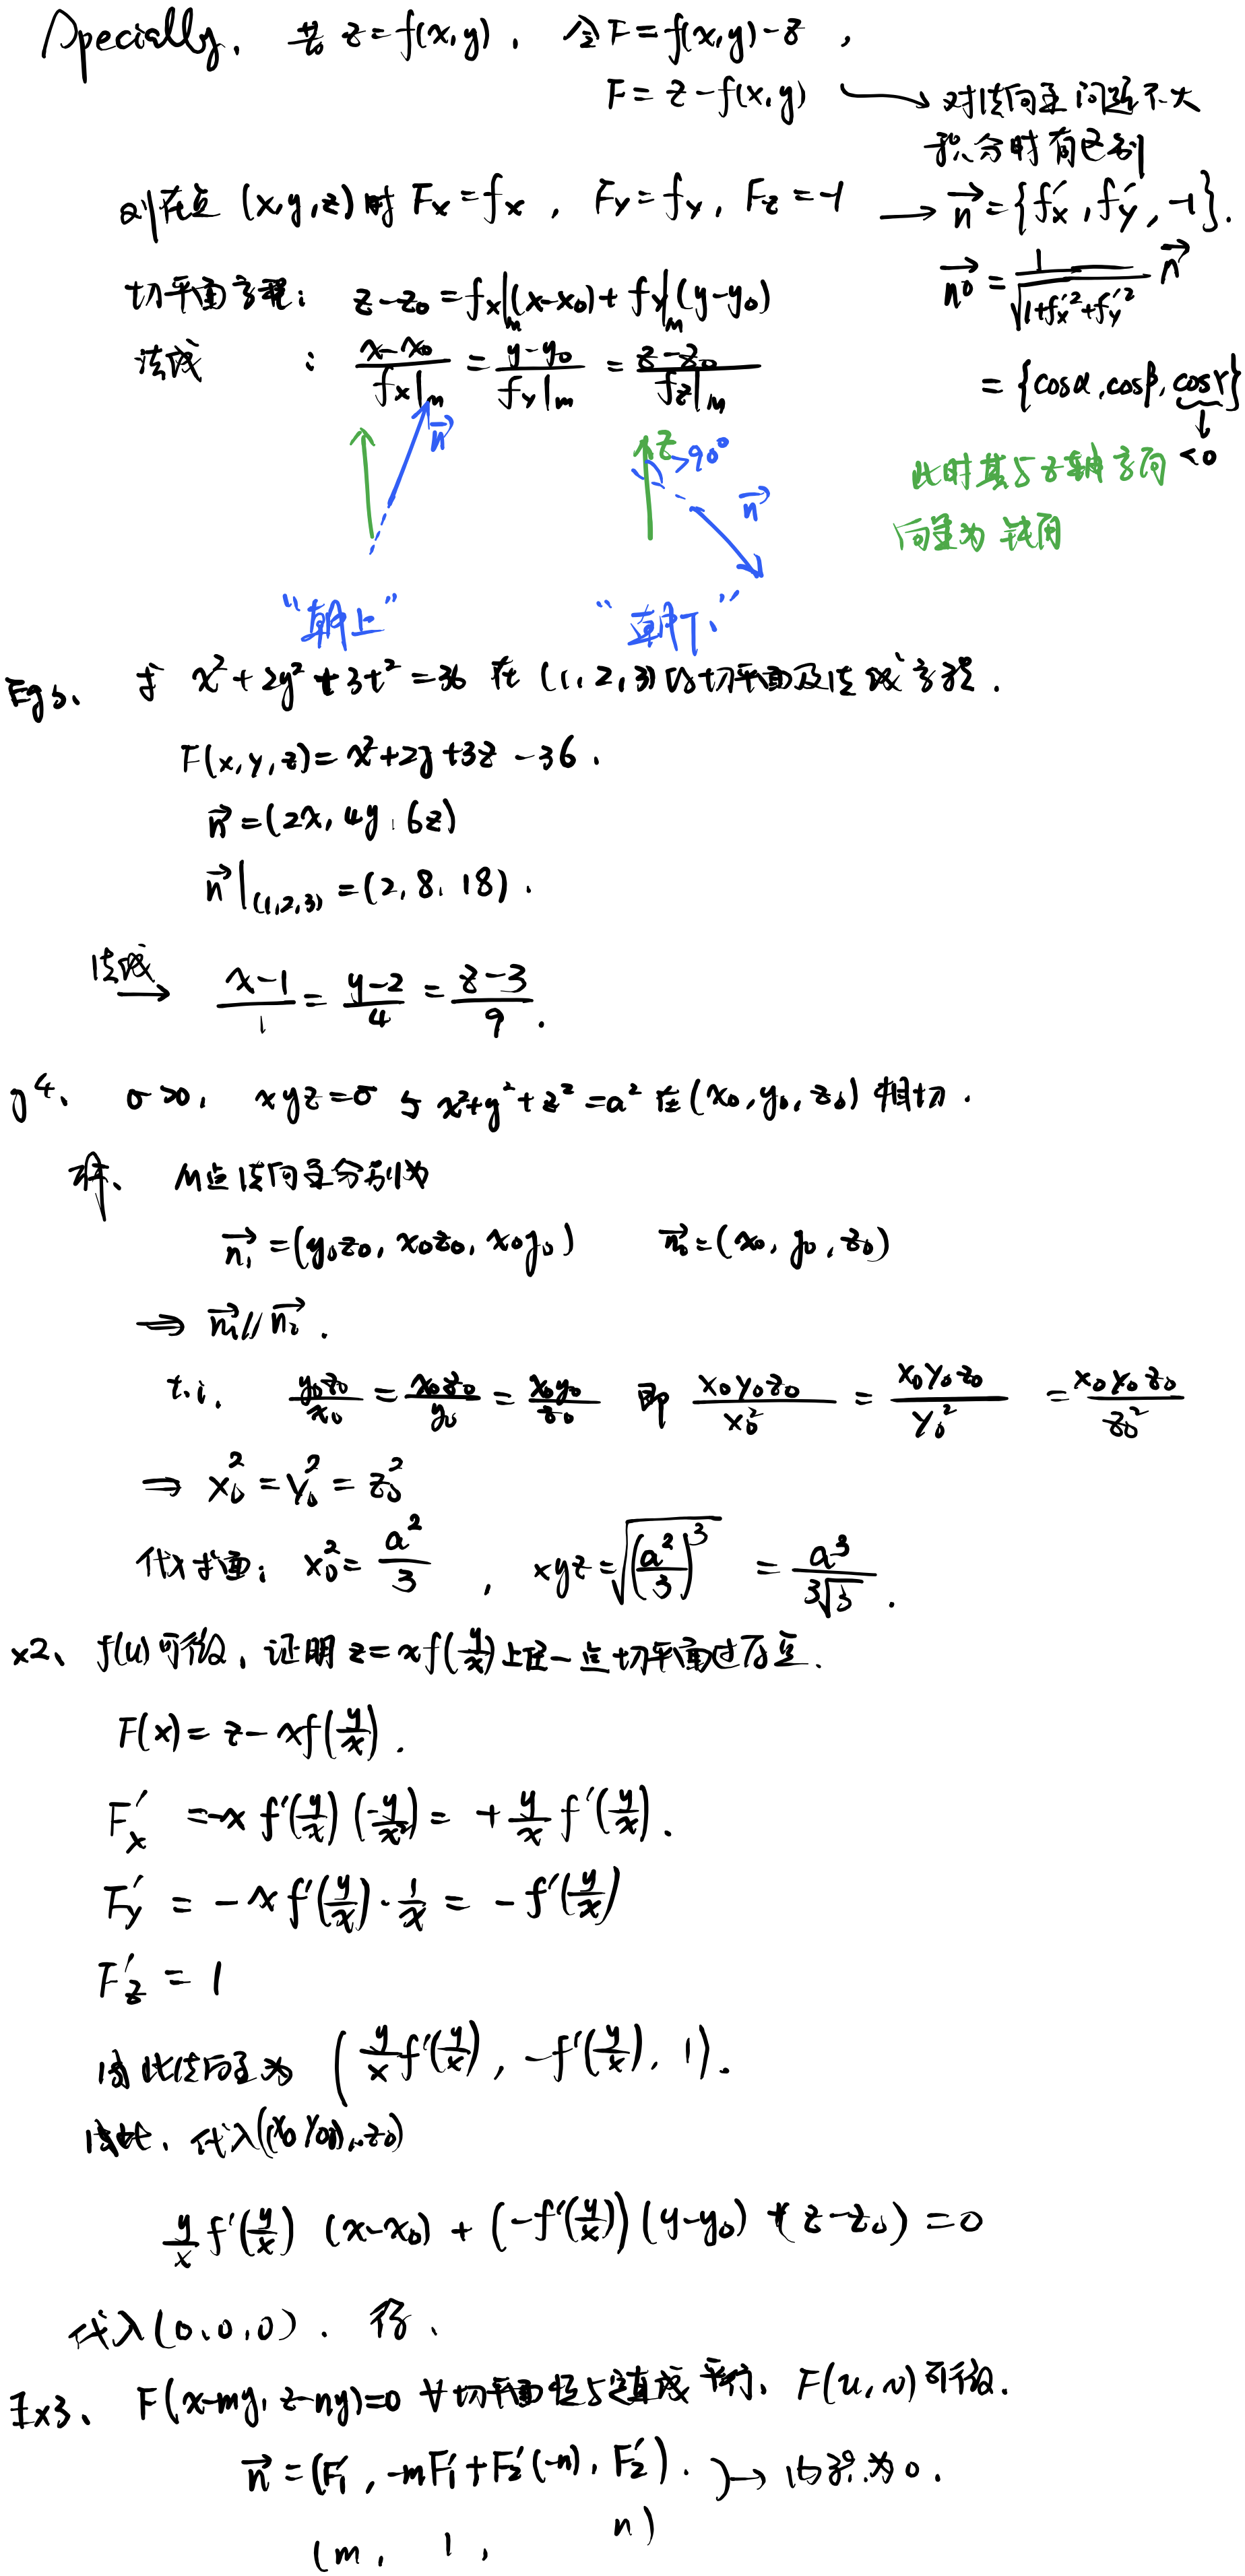 Specially, 若 z=f(x,y), 令F=f(x,y)-z,
F=z-f(x,y) → 对法向量问题不大
积分时有区别
则在点 (x,y,z) 时 Fx=fx, Fy=fy, Fz=-1 → n⃗={f'x, f'y, -1}.
切平面方程: z-z₀=fx|m(x-x₀)+fy|m(y-y₀)
n⃗⁰=1/√(1+f'x²+f'y²) n⃗
法线: (x-x₀)/(fx|m)=(y-y₀)/(fy|m)=(z-z₀)/(fz|m)
={cosα,cosβ,cosγ}
↓
<0
n⃗
z >90°
n⃗
此时其与z轴方向
向量为 钝角
“朝上” “朝下”
Eg3、 求 x²+2y²+3t²=36 在 (1,2,3) 的切平面及法线方程.
F(x,y,z)=x²+2y+3z-36.
n⃗=(2x,4y,6z)
n⃗|(1,2,3)=(2,8,18).
法线→ (x-1)/1=(y-2)/4=(z-3)/9.
g4、 σ>0, xyz=σ 与 x²+y²+z²=a² 在(x₀,y₀,z₀) 相切.
解、 M点法向量分别为
n₁⃗=(y₀z₀, x₀z₀, x₀y₀) n₂⃗=(x₀,y₀,z₀)
⇒ n₁⃗∥n₂⃗.
t.i. y₀z₀/x₀=x₀z₀/y₀=x₀y₀/z₀ 即 x₀y₀z₀/x₀²=x₀y₀z₀/y₀²=x₀y₀z₀/z₀²
⇒ x₀²=y₀²=z₀²
代入求面: x₀²=a²/3, xyz=√((a²/3)³)=a³/(3√3).
x2、 f(u)可微, 证明 z=xf(y/x)上任一点切平面过原点.
F(x)=z-xf(y/x).
F'x=-x f'(y/x)(-y/x²)=+y/x f'(y/x).
F'y=-x f'(y/x)·1/x=-f'(y/x)
F'z=1
因此法向量为 (y/x f'(y/x), -f'(y/x), 1).
因此、代入((x₀,y₀),z₀)
y/x f'(y/x) (x-x₀)+(-f'(y/x))(y-y₀)+(z-z₀)=0
代入(0,0,0). 得、
Ex3、 F(x-my, z-ny)=0 ∀切平面恒与定直线平行、F(u,v)可微.
n⃗=(F'₁, -mF'₁+F'₂(-n), F'₂). )→ 内积为0.
(m, 1, n)